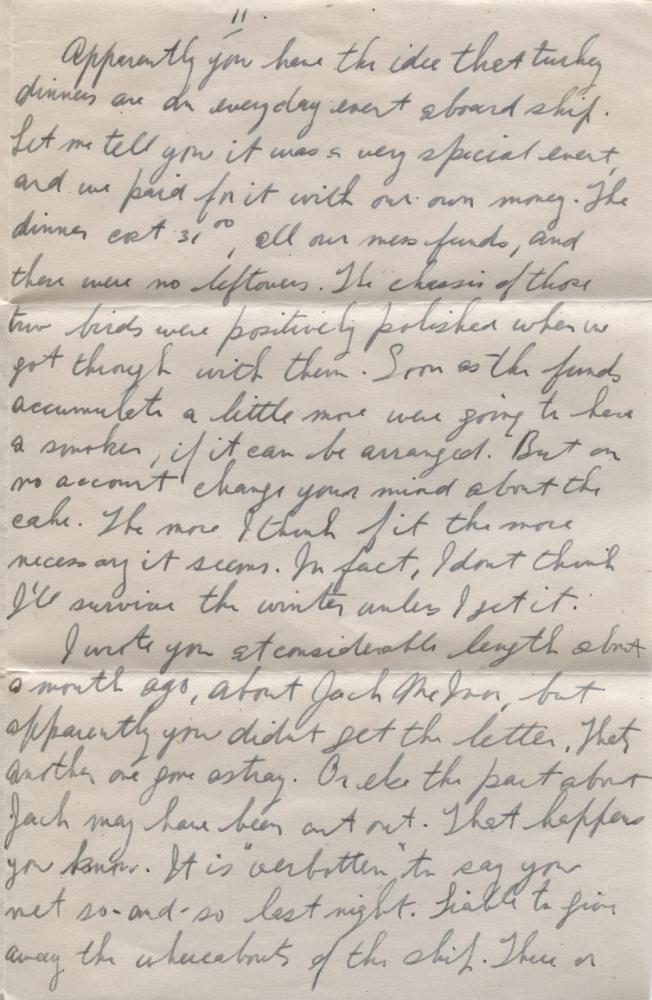 11
Apparently you have the idea that turkey
dinners are an everyday event aboard ship.
Let me tell you it was a very special event,
and we paid for it with our own money. The
dinner cost 31⁰⁰, all our mess funds, and
there were no leftovers. The chassis of those
two birds were positively polished when we
got through with them. Soon as the funds
accumulate a little more were going to have
a smoker, if it can be arranged. But on
no account change your mind about the
cake. The more I think of it the more
necessary it seems. In fact, I dont think
I'll survive the winter unless I get it.
I wrote you at considerable length about
a month ago, about Jack McInor, but
apparently you didn't get the letter. Thats
another one gone astray. Or else the part about
Jack may have been cut out. That happens
you know. It is "verbotten" to say you
met so-and-so last night. Liable to give
away the whereabouts of the ship. There or